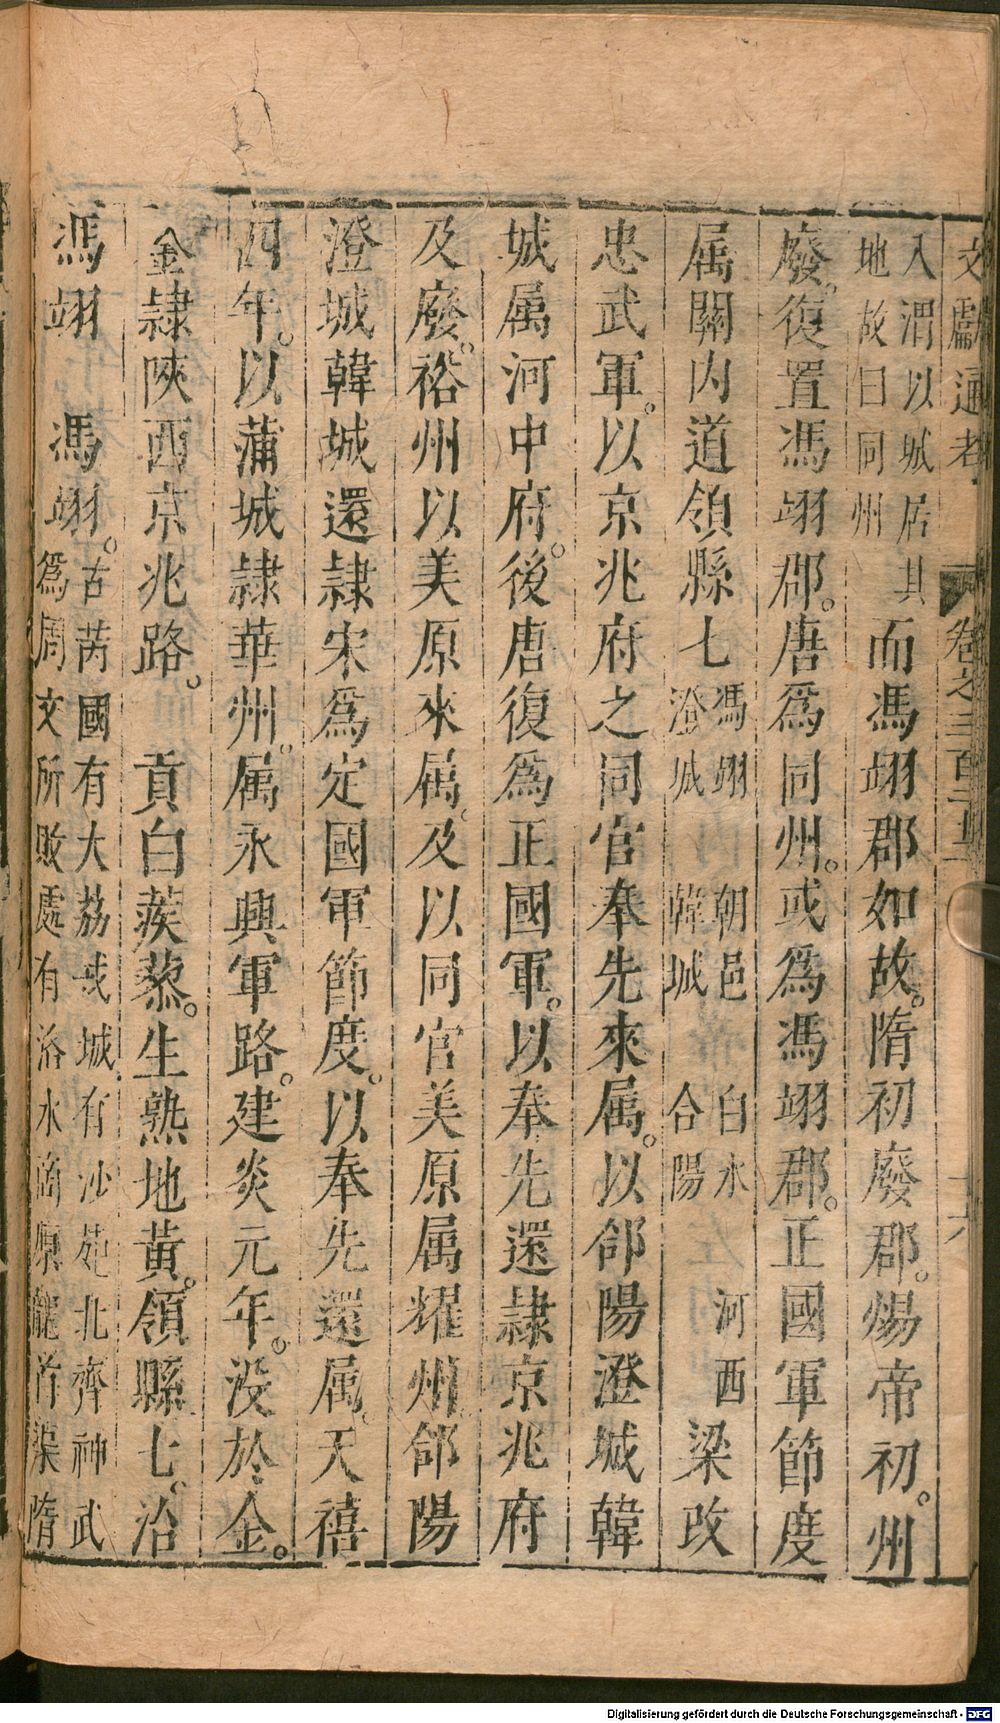 文獻通考 卷之三百二十二 十六
入渭以城居其
地故曰同州
而馮翊郡如故。隋初廢郡。煬帝初。州
廢。復置馮翊郡。唐爲同州。或爲馮翊郡。正國軍節度
属關內道領縣七
馮翊 朝邑 白水 河西
澄城 韓城 合陽
梁改
忠武軍。以京兆府之同官奉先來属。以郃陽澄城韓
城属河中府。後唐復爲正國軍。以奉先還隷京兆府
及廢。裕州以美原來属。及以同官美原属耀州郃陽
澄城韓城還隷宋爲定國軍節度。以奉先還属。天禧
四年。以蒲城隷華州。属永興軍路。建炎元年。没於金。
金隷陝西京兆路。 貢白蒺藜。生熟地黃。領縣七。治
馮翊
馮翊。
古芮國有大荔戎城有沙苑北齊神武
爲周文所敗處有洛水商原龍首渠隋
Digitalisierung gefördert durch die Deutsche Forschungsgemeinschaft - DFG